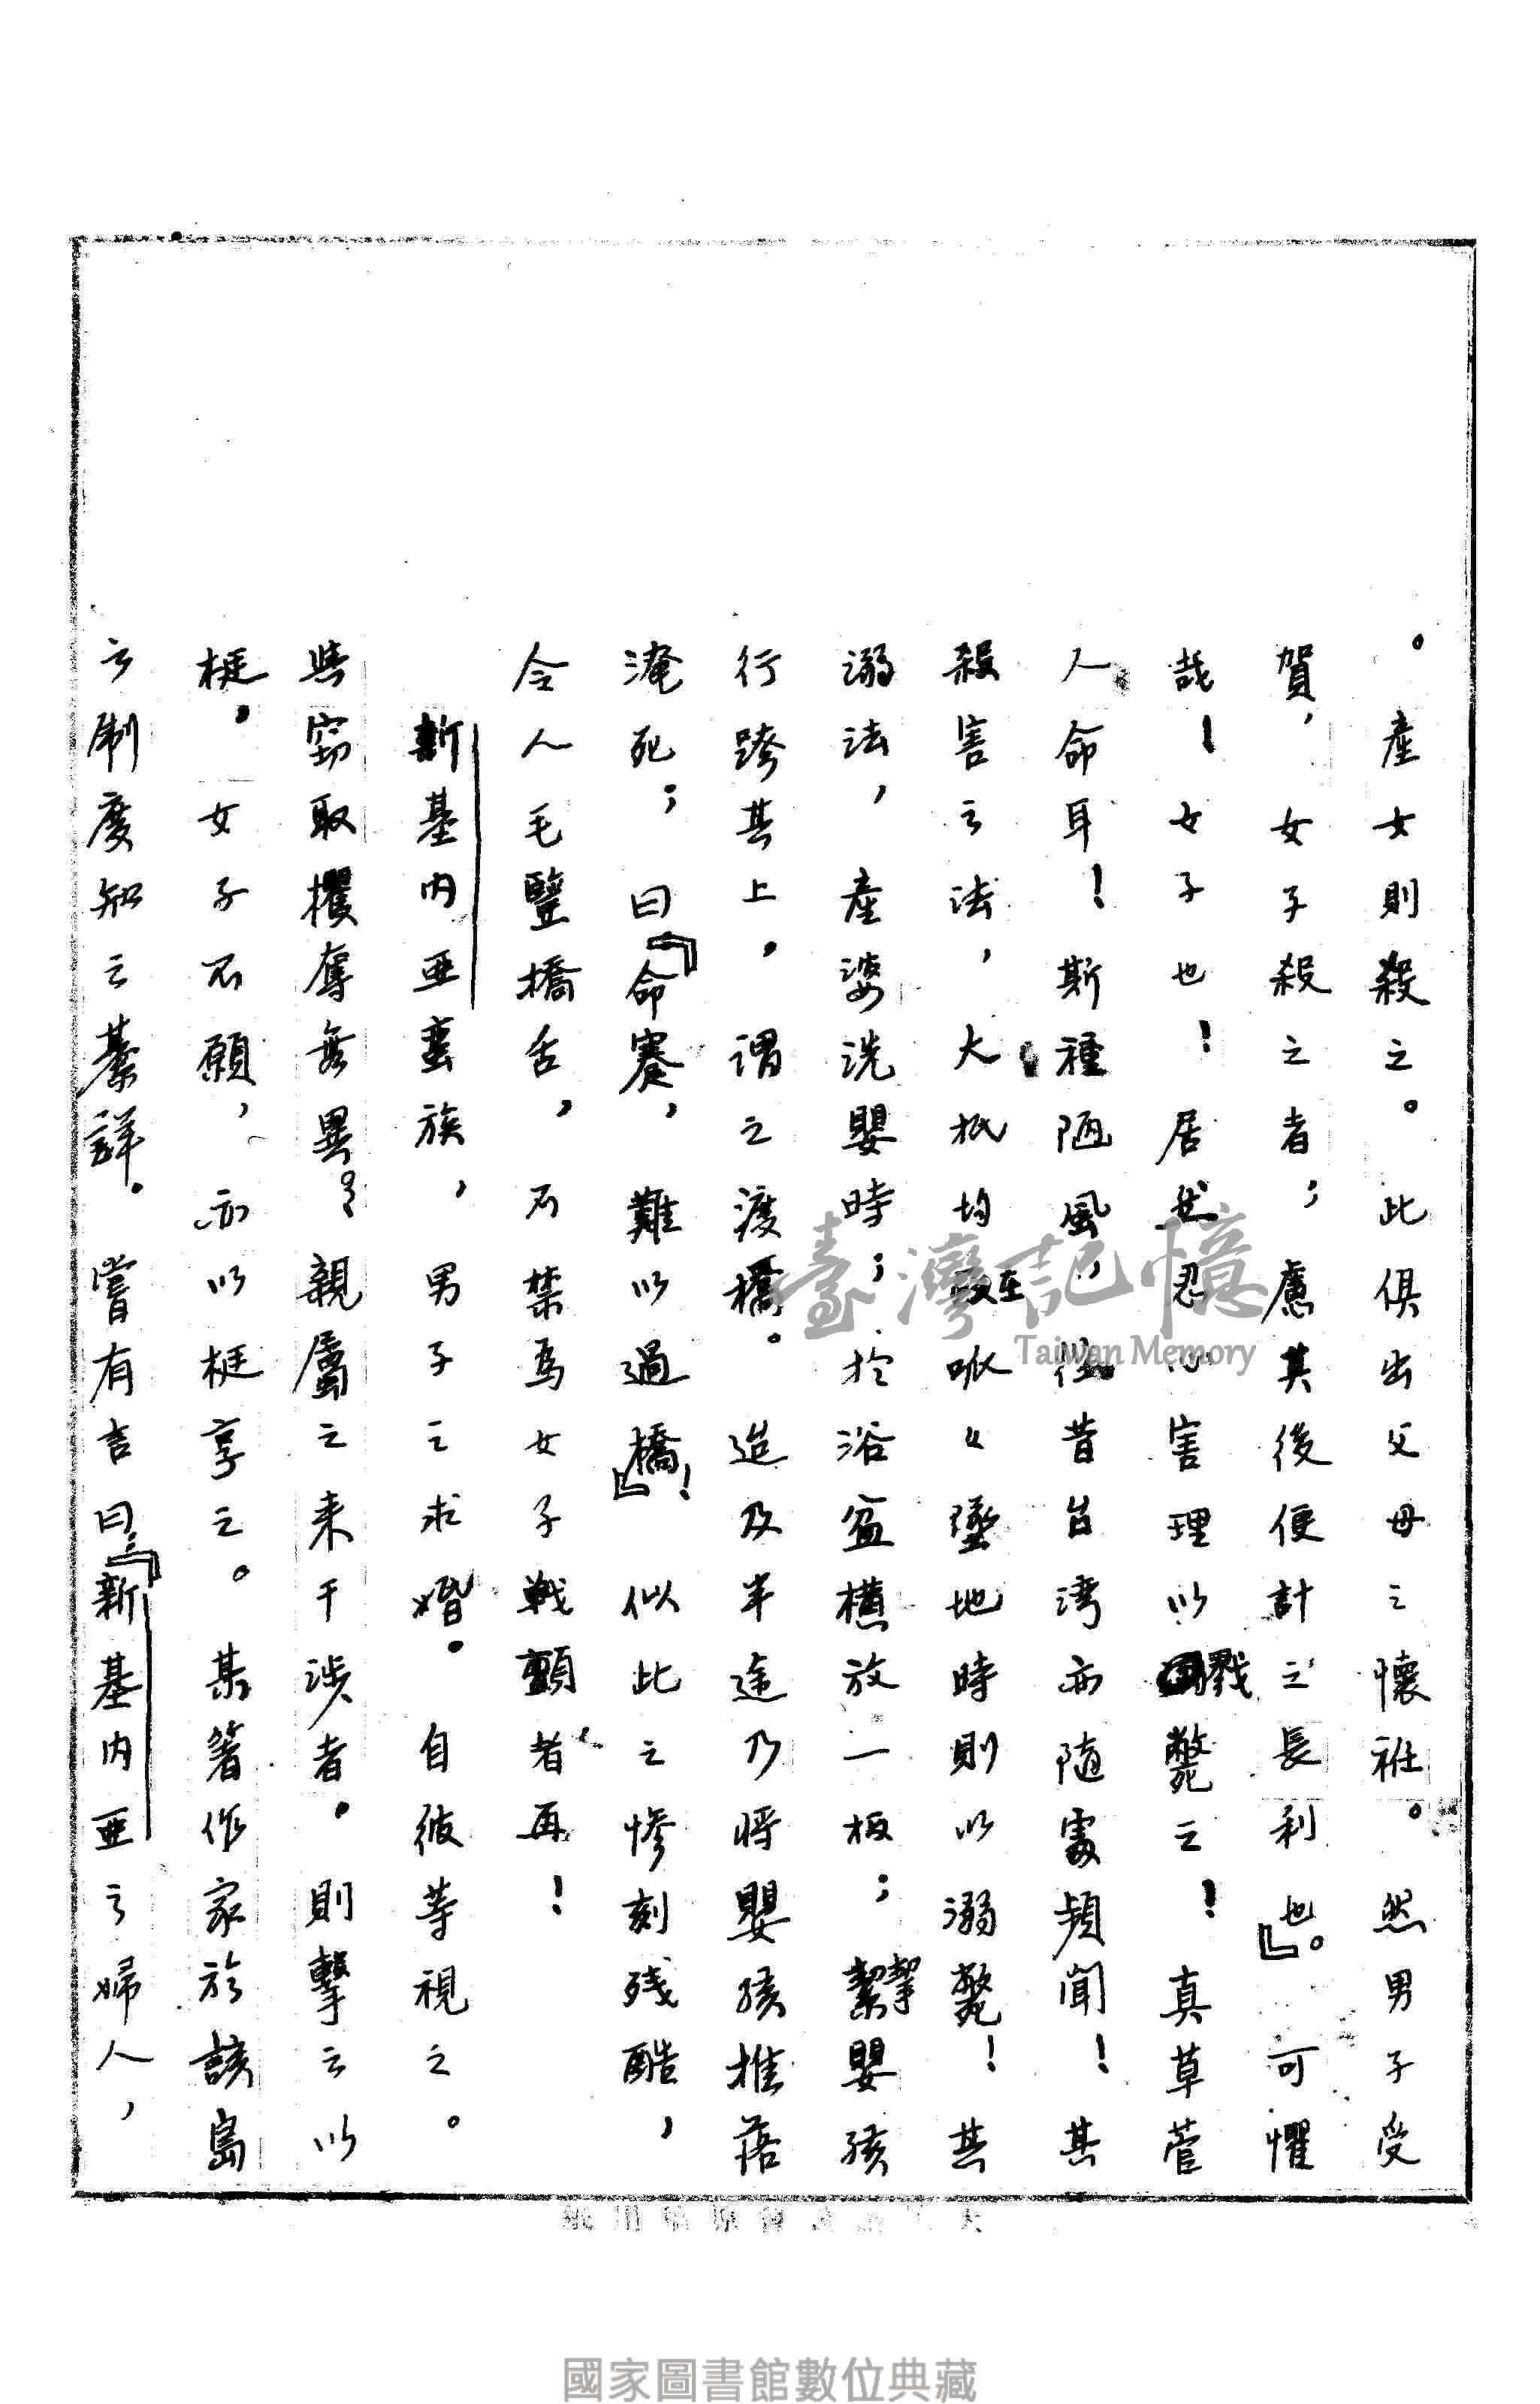 。產女則殺之。此俱出父母之懷衽。然男子受
賀，女子殺之者；慮其後便計之長利也』。可懼
哉！女子也！居然忍心害理以戮斃之！真草菅
人命耳！斯種陋風，往昔台湾亦随處頻聞！其
殺害之法，大抵均在呱〻墜地時則以溺斃！其
溺法，產婆洗嬰時；於浴盆橫放一板；挈嬰孩
行跨其上。謂之渡橋。迨及半途乃将嬰孩推落
淹死；曰『命蹇，難以過橋！』似此之慘刻残酷，
令人毛豎撟舌，不禁為女子戦顫者再！
新基内亜蛮族，男子之求婚。自彼等視之。
與窃取攫奪無異；親屬之来干涉者。則擊之以
梃。女子不願，亦以梃享之。某著作家於該島
之制度知之綦詳。嘗有言曰：『新基内亜之婦人，
臺灣記憶
Taiwan Memory
國家圖書館數位典藏